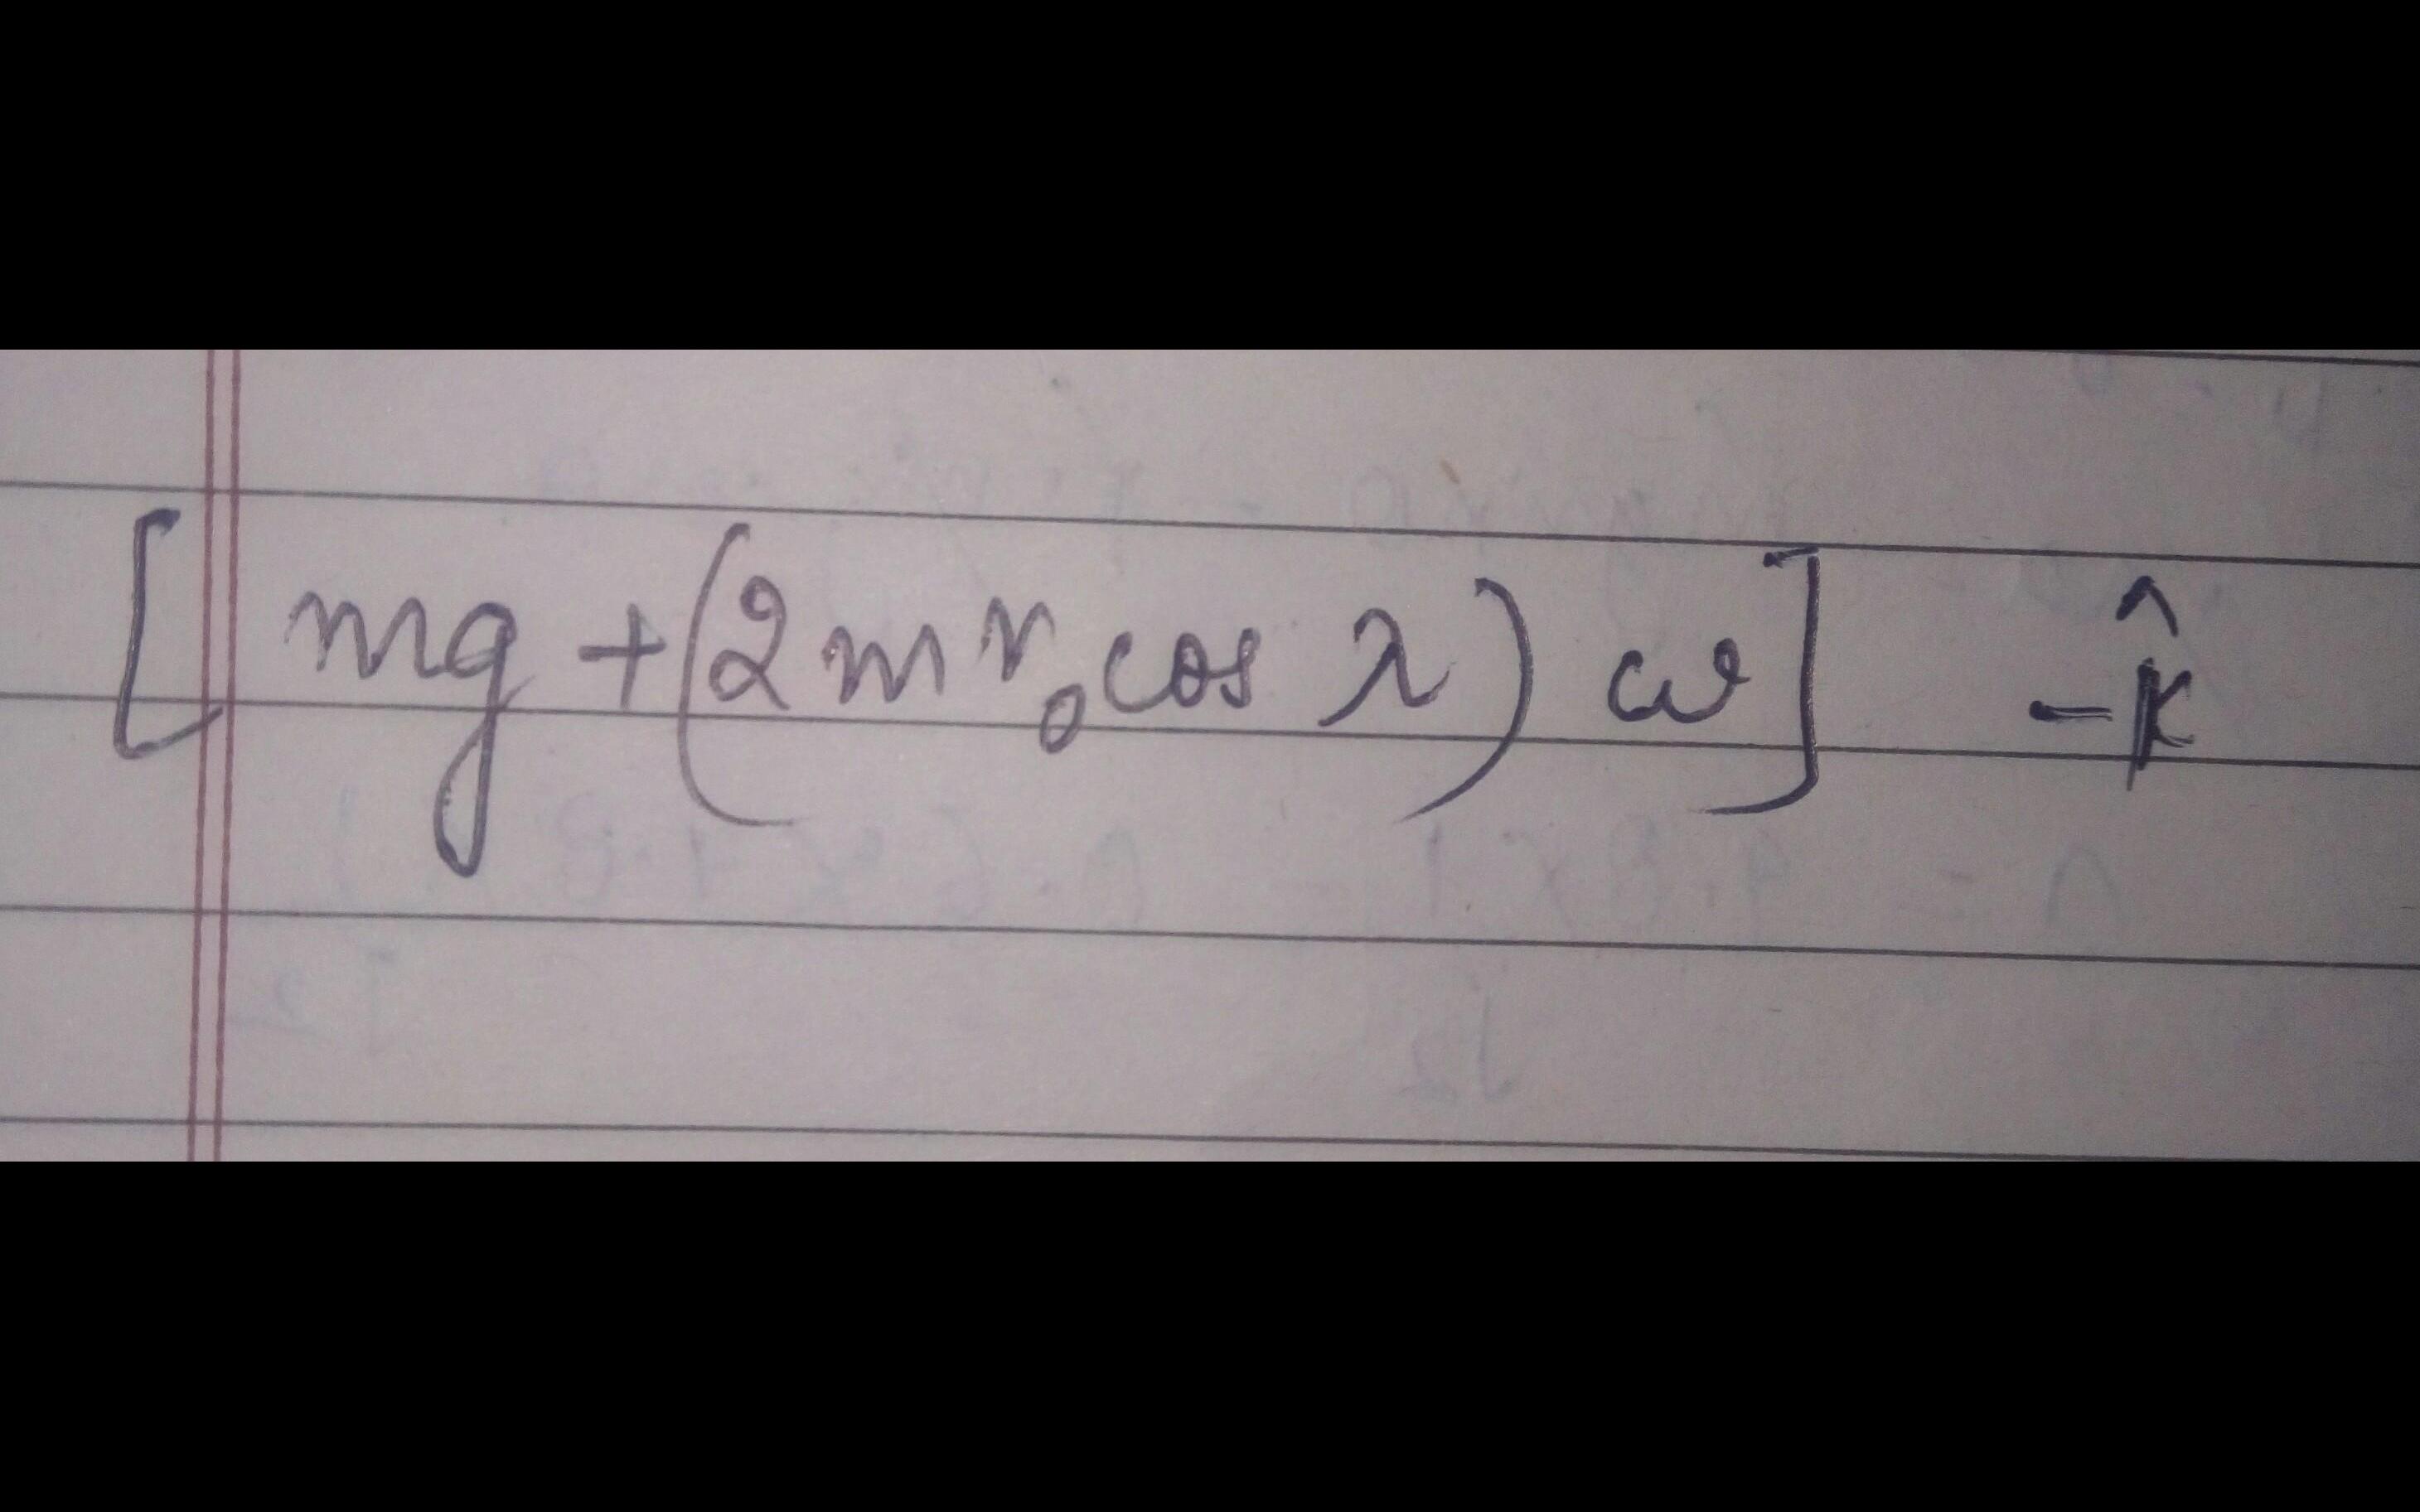 [ mg + (2 m v₀ cos λ) ω] -k̂